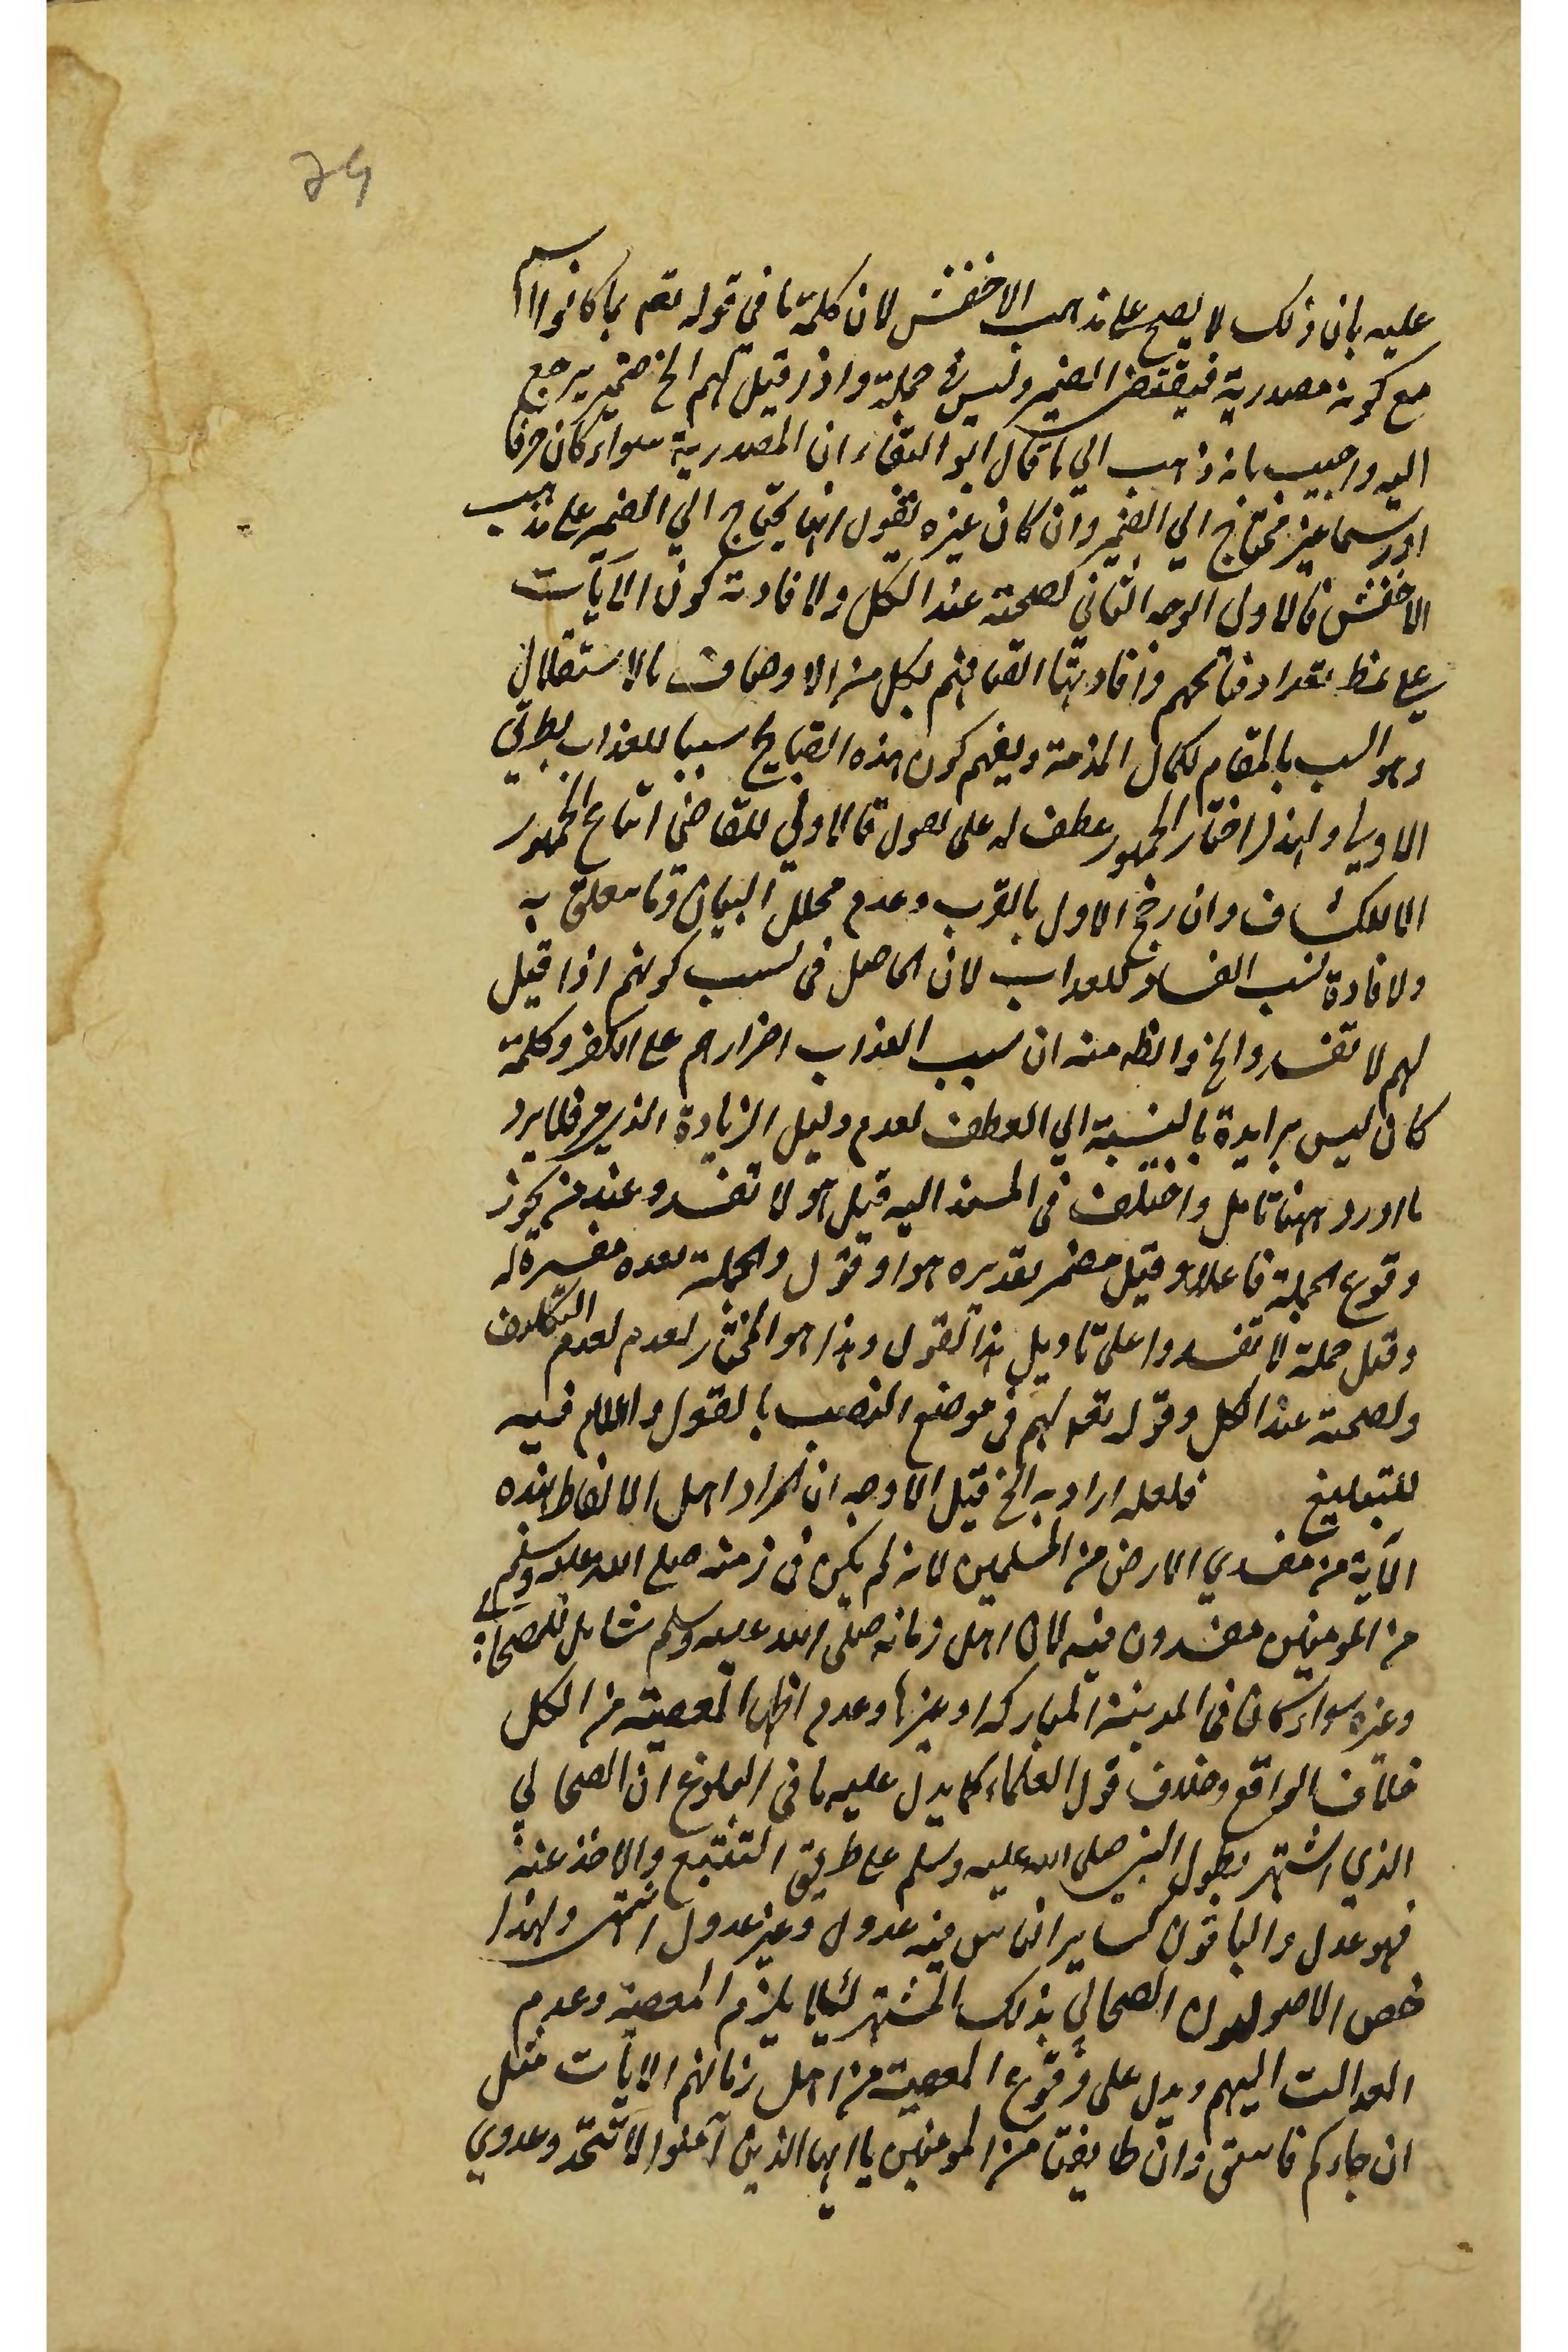 عليه بان ذلك لا يصح على مذهب الاخفش لان كلمة ما في قوله تعم بما كانوا اسم
مع كونه مصدرية فيقتضى الضمير وليس في جملة واذا قيل لهم الخ ضمير يرجع
اليه واجيب بانه ذاهب الي ما قال ابو البقاء ان المصدرية سواء كان حرفا
او اسما غير محتاج الي الضمير وان كان غيره يقول انها يحتاج الي الضمير على مذهب
الاخفش فالاولى الوجه الثاني لصحته عند الكل ولافادته كون الآيات
على نمط تعداد قبائحهم وافادتها اتصافهم بكل من الاوصاف بالاستقلال
وهو انسب بالمقام لكمال المذمة ويفهم كون هذه القبايح سببا للعذاب بطريق
الاولى ولهذا اختار الجمهور عطفه له على يقول فالاولى للقاضي اتباع الجمهور
الا للكشاف وان رجح الاول بالقرب وعدم تخلل البيان وما يتعلق به
ولافادة تسبب الفساد للعذاب لان الحاصل في تسبب كونهم اذا قيل
لهم لا تفسدوا الخ والظ منه ان سبب العذاب اضرارهم على الكفر وكلمة
كان ليس بزايدة بالنسبة الي العطف لعدم دليل الزيادة فلا يرد
ما اورد ههنا تامل واختلف في المسند اليه قيل هو لا تفسدوا عند من يجوز
وقوع الجملة فاعلا وقيل مضمر تقديره هو او قول والجملة بعده مفسرة له
وقيل جملة لا تفسدوا على تاويل هذا القول وهذا هو المختار لعدم لعدم التكلف
ولصحته عند الكل وقوله تعم لهم في موضع النصب بالقول واللام فيه
للتبليغ فلعله اراد به الخ قيل الاوجه ان المراد اهل الالفاظ هذه
الآية من مفسدي الارض من المسلمين لانه لم يكن في زمنه صلى الله عليه وسلم
من المومنين مفسدون فيه لان اهل زمانه صلى الله عليه وسلم شامل للصحابي
وغيره سواء كان في المدينة المباركة او غيرها وعدم اظهار المعصية من الكل
خلاف الواقع وخلاف قول العلماء كما يدل عليه ما في التلويح ان الصحابي
الذي اشتهر بطول النبي صلى الله عليه وسلم على طريق التتبع والاخذ عنه
فهو عدل والباقون كساير الناس فيه عدول وغير عدول انتهى ولهذا
خص الاصوليون الصحابي بذلك المشتهر لئلا يلزم المعصية وعدم
العدالت اليهم ويدل على وقوع المعصية من اهل زمانهم الآيات مثل
ان جاءكم فاسق وان طايفتان من المومنين يا ايها الذين آمنوا لا تتخذوا عدوي